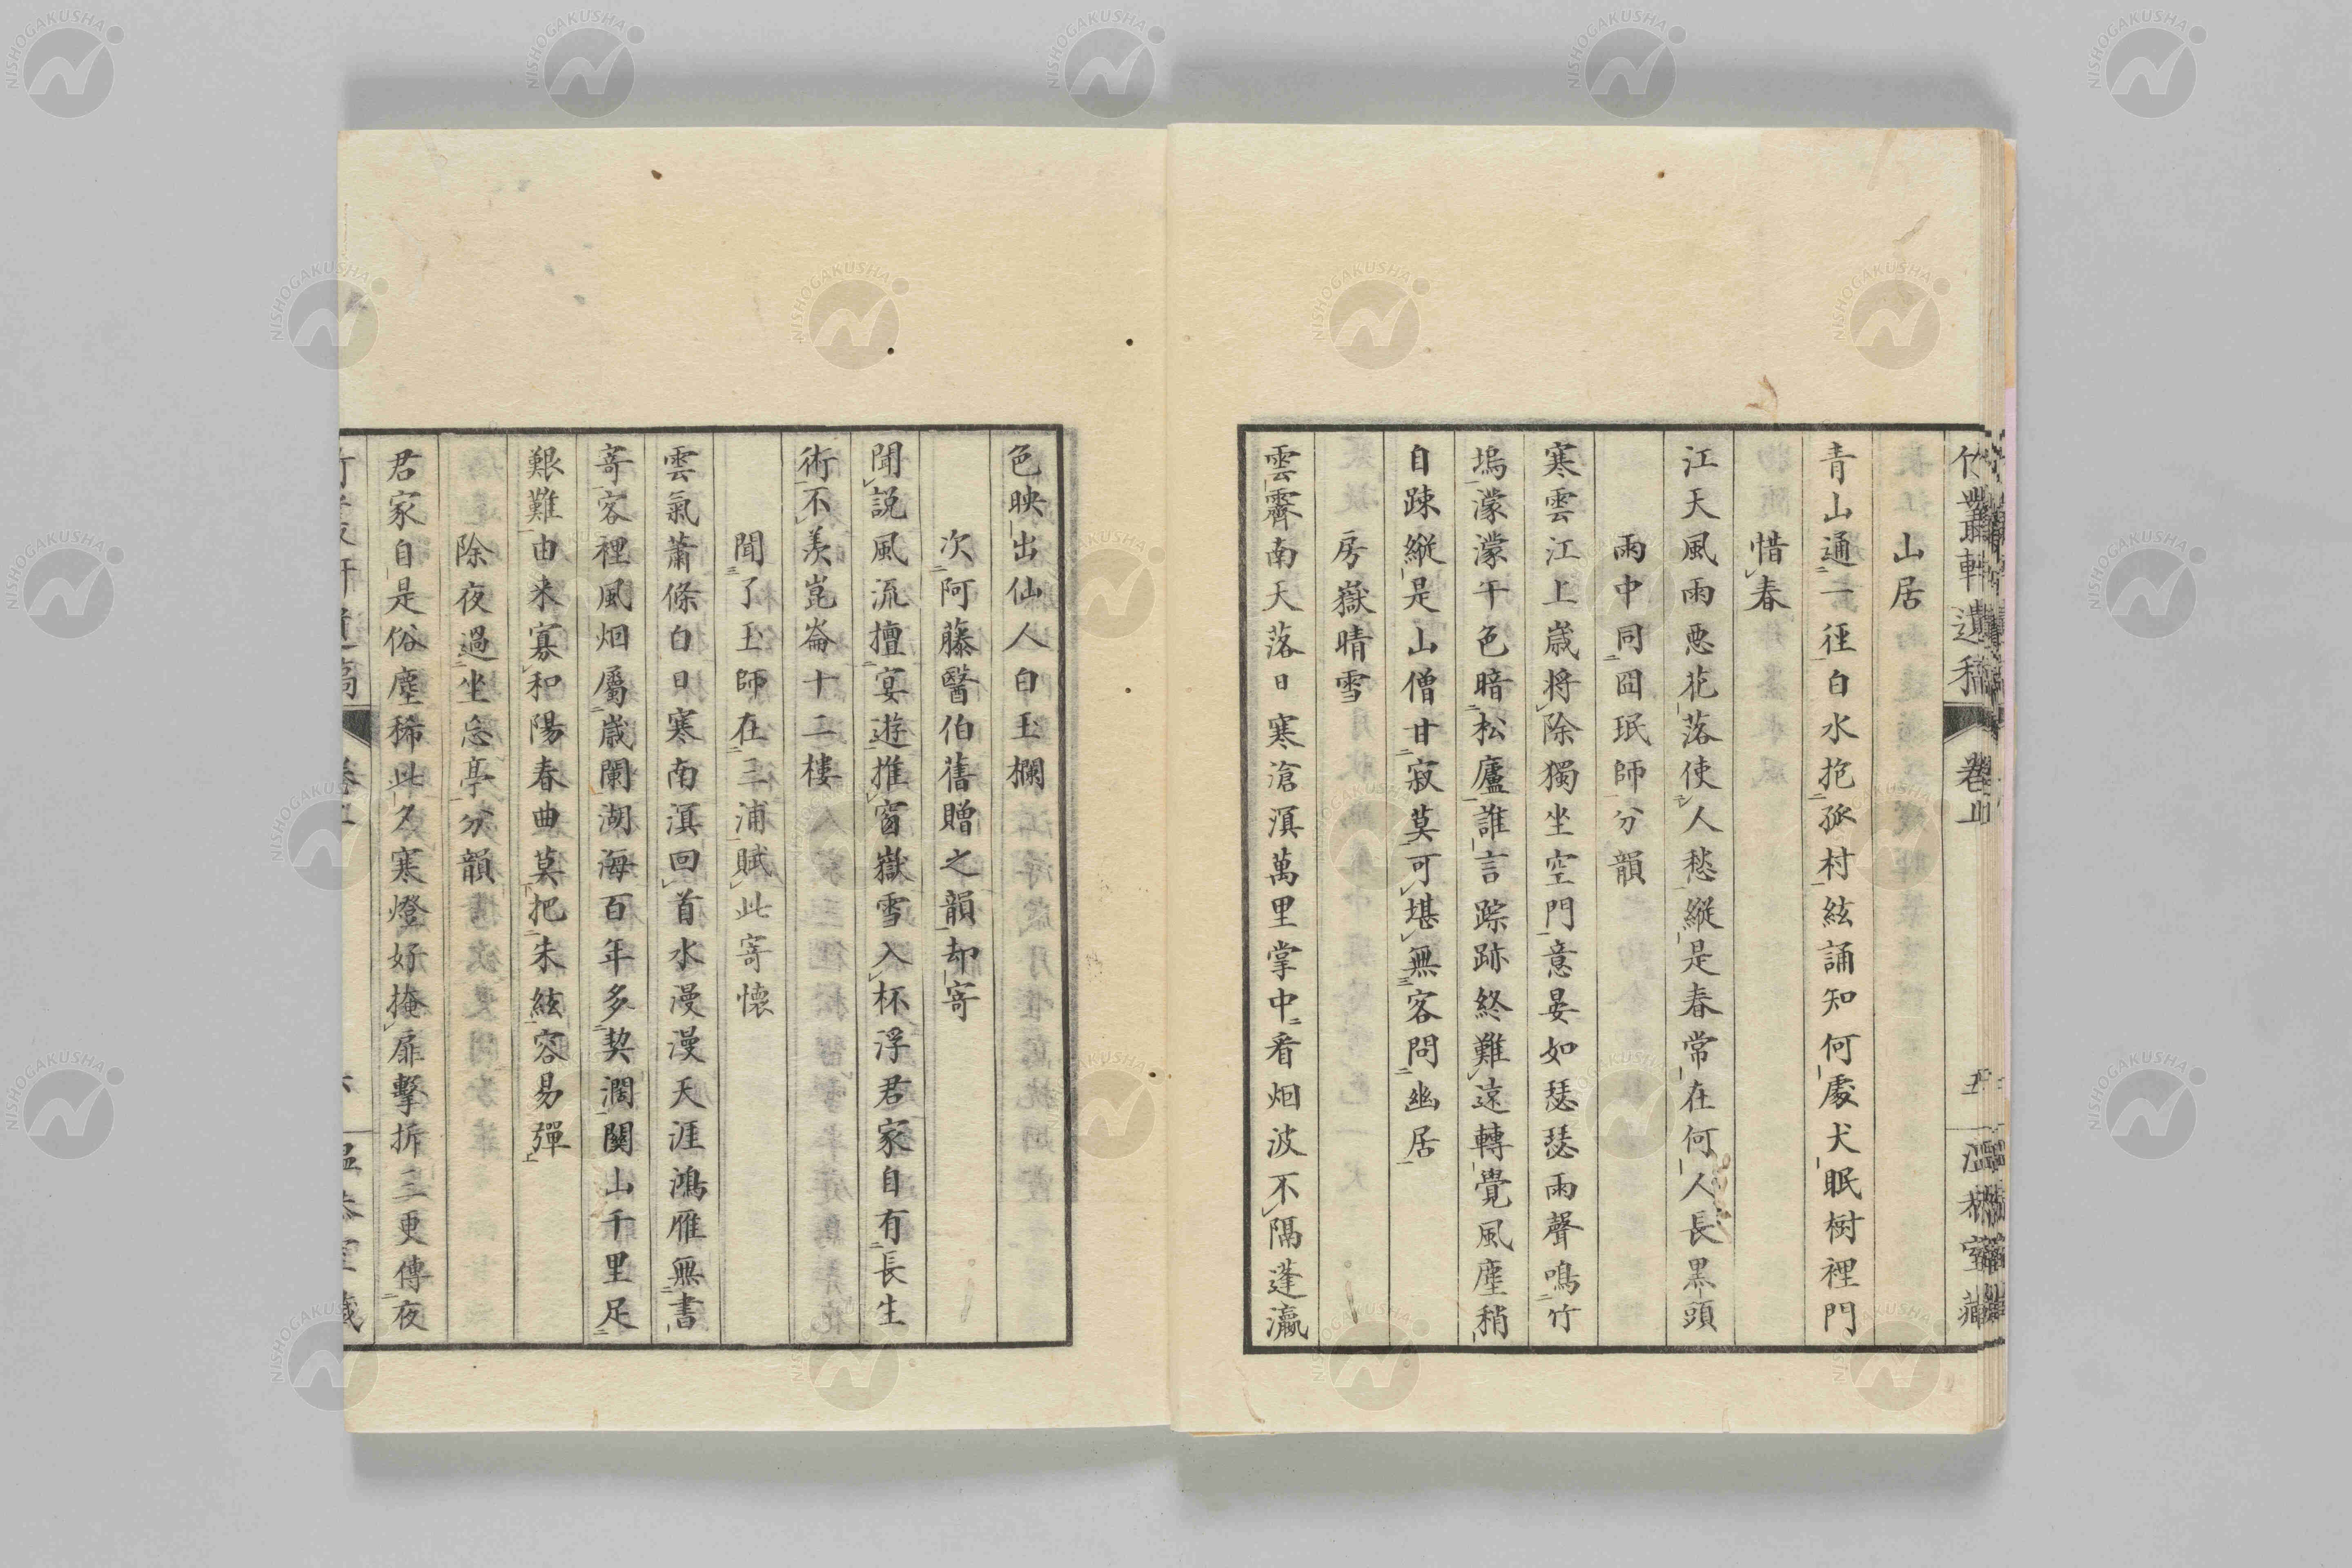 山居
青山通一徑白水抱孤村絃誦知何處犬眠樹裡門
惜春
江天風雨悪花落使人愁縦是春常在何人長黒頭
雨中同囧珉師分韻
寒雲江上歳将除獨坐空門意晏如瑟瑟雨聲鳴竹
塢濛濛午色暗松廬誰言踪跡終難遠轉覺風塵稍
自踈縦是山僧甘寂莫可堪無客問幽居
房嶽晴雪
雲霽南天落日寒滄溟萬里掌中看烟波不隔蓬瀛
色映出仙人白玉欄
次阿藤醫伯舊贈之韻却寄
聞説風流擅宴遊推窗嶽雪入杯浮君家自有長生
術不羨崑崙十二樓
聞了玉師在三浦賦此寄懐
雲氣蕭條白日寒南溟回首水漫漫天涯鴻雁無書
寄客裡風烟屬歳闌湖海百年多契濶關山千里足
艱難由来寡和陽春曲莫把朱絃容易彈
除夜過坐忘亭分韻
君家自是俗塵稀此夕寒燈好掩扉撃柝三更傳夜
NISHOGAKUSHA